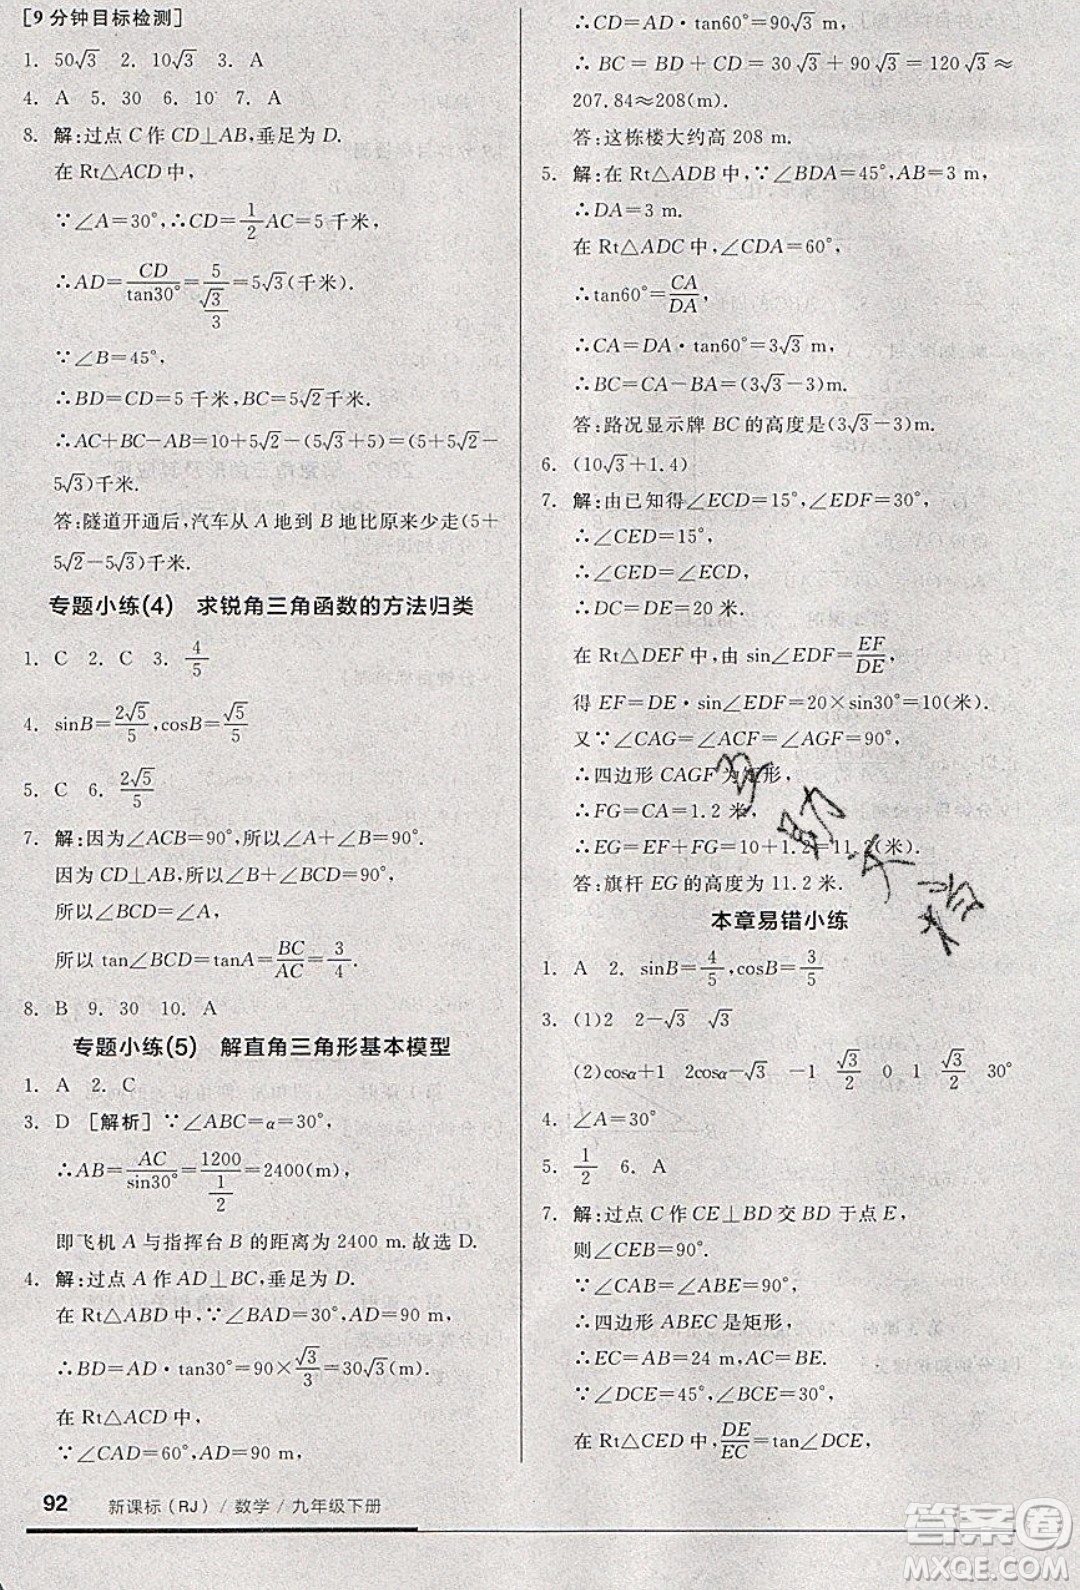 [9分钟目标检测]
1. 50√3  2. 10√3  3. A
4. A  5. 30  6. 10  7. A
8. 解:过点 C 作 CD⊥AB,垂足为 D.
在 Rt△ACD 中,
∵∠A=30°,∴CD=1/2AC=5 千米,
∴AD=CD/tan30°=5/(√3/3)=5√3(千米).
∵∠B=45°,
∴BD=CD=5 千米,BC=5√2千米.
∴AC+BC-AB=10+5√2-(5√3+5)=(5+5√2-
5√3)千米.
答:隧道开通后,汽车从 A 地到 B 地比原来少走(5+
5√2-5√3)千米.
专题小练(4)  求锐角三角函数的方法归类
1. C  2. C  3. 4/5
4. sinB=2√5/5,cosB=√5/5
5. C  6. 2√5/5
7. 解:因为∠ACB=90°,所以∠A+∠B=90°.
因为 CD⊥AB,所以∠BCD+∠B=90°,
所以∠BCD=∠A,
所以 tan∠BCD=tanA=BC/AC=3/4.
8. B  9. 30  10. A
专题小练(5)  解直角三角形基本模型
1. A  2. C
3. D  [解析] ∵∠ABC=α=30°,
∴AB=AC/sin30°=1200/(1/2)=2400(m),
即飞机 A 与指挥台 B 的距离为 2400 m.故选 D.
4. 解:过点 A 作 AD⊥BC,垂足为 D.
在 Rt△ABD 中,∵∠BAD=30°,AD=90 m,
∴BD=AD·tan30°=90×√3/3=30√3(m).
在 Rt△ACD 中,
∵∠CAD=60°,AD=90 m,
∴CD=AD·tan60°=90×√3=90√3(m),
∴BC=BD+CD=30√3+90√3=120√3=
207.84≈208(m).
答:这栋楼大约高 208 m.
5. 解:在 Rt△ADB 中,∵∠BDA=45°,AB=3 m,
∴DA=3 m.
在 Rt△ADC 中,∠CDA=60°,
∴tan60°=CA/DA,
∴CA=DA·tan60°=3√3 m,
∴BC=CA-BA=(3√3-3)m.
答:路况显示牌 BC 的高度是(3√3-3)m.
6. (10√3+1.4)
7. 解:由已知得∠ECD=15°,∠EDF=30°,
∴∠CED=15°,
∴∠CED=∠ECD,
∴DC=DE=20 米,
在 Rt△DEF 中,由 sin∠EDF=EF/DE,
得 EF=DE·sin∠EDF=20×sin30°=10(米).
又∵∠CAG=∠ACF=∠AGF=90°,
∴四边形 CAGF 为矩形,
∴FG=CA=1.2 米,
∴EG=EF+FG=10+1.2=11.2(米).
答:旗杆 EG 的高度为 11.2 米.
本章易错小练
1. A  2. sinB=4/5,cosB=3/5
3. (1)2  2-√3  √3
(2)cosα+1  2cosα  -1  √3/2  0  1  √3/2  30°
4. ∠A=30°
5. 1/2  6. A
7. 解:过点 C 作 CE⊥BD 交 BD 于点 E,
则∠CEB=90°.
∵∠CAB=∠ABE=90°,
∴四边形 ABEC 是矩形,
∴EC=AB=24 m,AC=BE.
∵∠DCE=45°,∠BCE=30°,
在 Rt△CED 中,DE/EC=tan∠DCE,
92  新课标(RJ)/数学/九年级下册
互助文档
答案圈
MXQE.COM